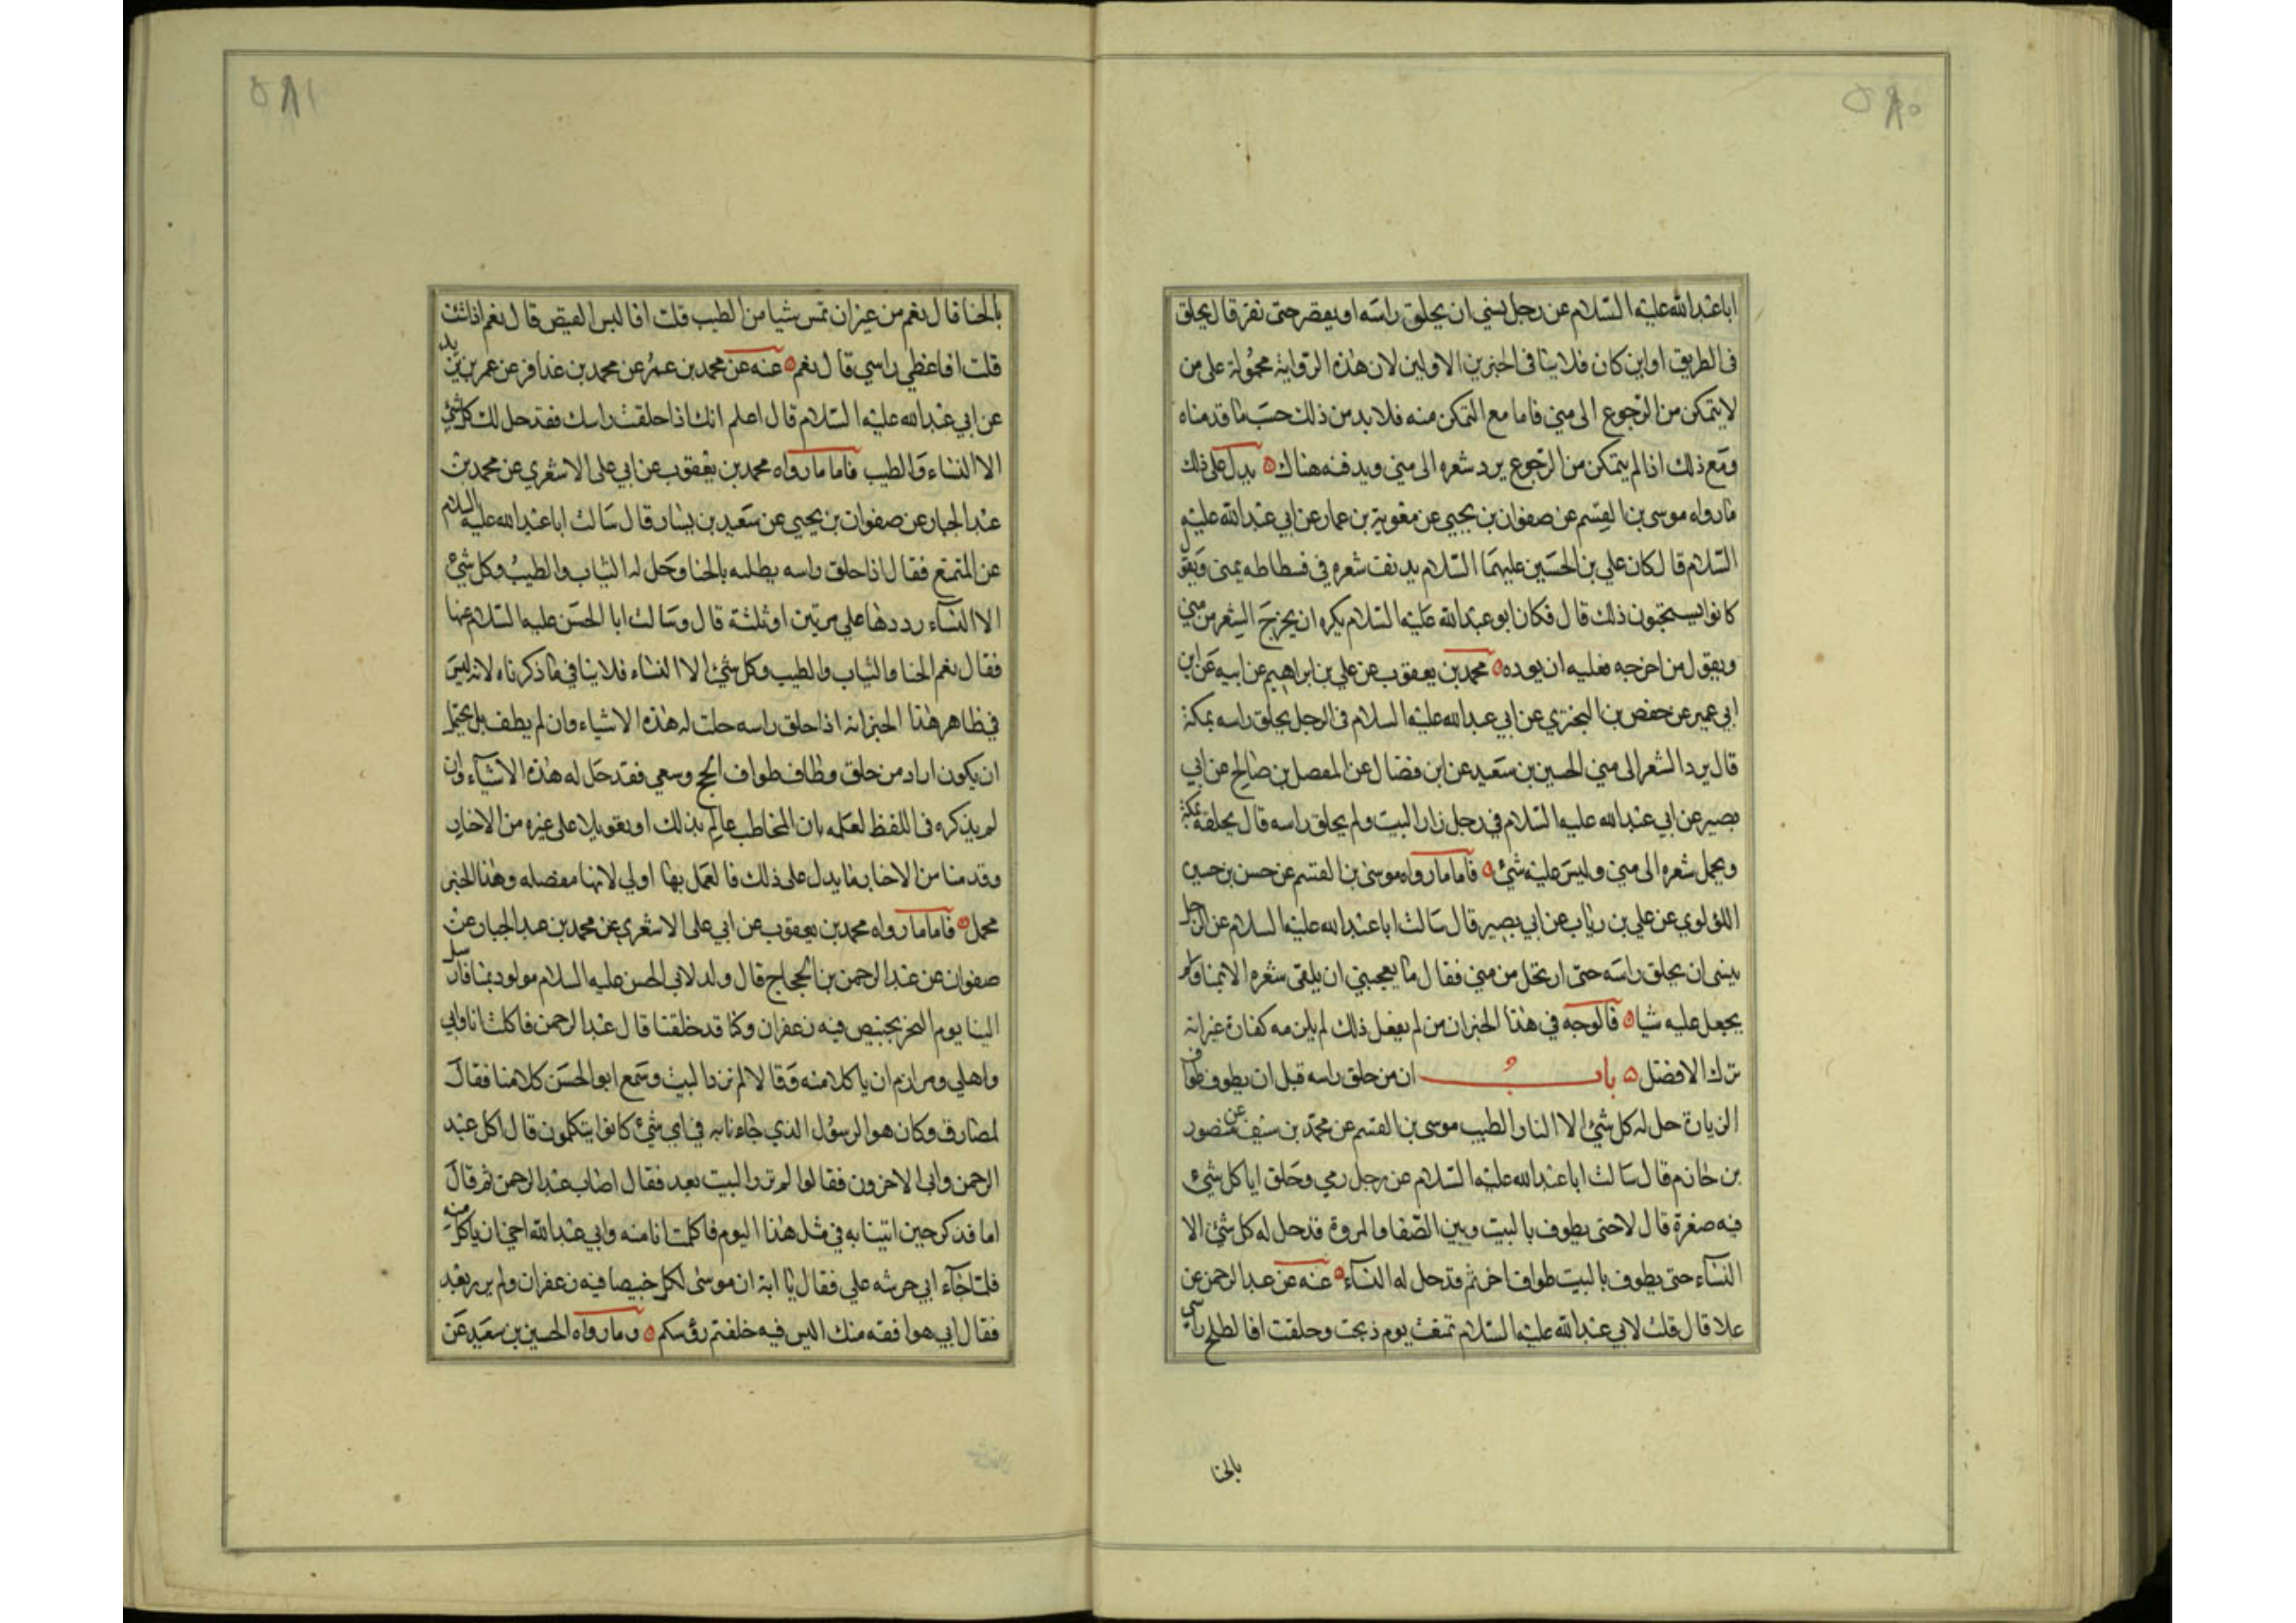 ٥٨٠
ابا عبدالله عليه السلام عن رجل ينسي ان يحلق راسه او يقصر حتى نفر قال يحلق
فى الطريق او اين كان فلا ينافى الخبرين الاولين لان هذه الرواية محمولة على من
لا يتمكن من الرجوع الى منى فاما مع التمكن منه فلا بد من ذلك حسب ما قدمناه
ومع ذلك اذا لم يتمكن من الرجوع يرد شعره الى منى ويدفنه هناك ٥ يدل على ذلك
ما رواه موسى بن القسم عن صفوان بن يحيي عن معوية بن عمار عن ابي عبدالله عليه
السلام قال كان علي بن الحسين عليهما السلام يدفن شعره في فسطاطه بمنى ويقول
كانوا يستحبون ذلك قال فكان ابو عبدالله عليه السلام يكره ان يخرج الشعر من منى
ويقول من اخرجه فعليه ان يرده ٥ محمد بن يعقوب عن علي بن ابراهيم عن ابيه عن ابن
ابي عمير عن حفص بن البختري عن ابي عبدالله عليه السلام في الرجل يحلق راسه بمكة
قال يرد الشعر الى منى الحسين بن سعيد عن ابن فضال عن المفصل بن صالح عن ابي
بصير عن ابي عبدالله عليه السلام في رجل زار البيت ولم يحلق راسه قال يحلقه بمكة
ويحمل شعره الى منى وليس عليه شئ ٥ فاما ما رواه موسى بن القسم عن حسن بن حسين
اللؤلوي عن علي بن رياب عن ابي بصير قال سالت ابا عبدالله عليه السلام عن الرجل
ينسى ان يحلق راسه حتى ارتحل من منى فقال ما يعجبني ان يلقى شعره الا بمنا ولم
يجعل عليه شيا ٥ فالوجه في هذا الخبر ان من لم يفعل ذلك لم يلزمه كفارة غير انه
ترك الافضل ٥ باب ان من حلق راسه قبل ان يطوف طواف
الزيارة حل له كل شئ الا النسا والطيب موسى بن القسم عن محمد بن سيف عن منصور
بن حازم قال سالت ابا عبدالله عليه السلام عن رجل رمي وحلق اياكل شئ
فيه صفرة قال لا حتى يطوف بالبيت وبين الصفا والمروة قد حل له كل شئ الا
النساء حتى يطوف بالبيت طوافا اخر ثم قد حل له النساء ٥ عنه عن عبد الرحمن عن
علا قال قلت لابي عبدالله عليه السلام تمتعت يوم ذبحت وحلقت افالطخ راسي
بالحنا
٥٨١
بالحنا قال نعم من غير ان تمس شيا من الطيب قلت افالبس القميص قال نعم اذا شئت
قلت افاغطي راسي قال نعم ٥ عنه عن محمد بن عمر عن محمد بن عذافر عن عمر بن يزيد
عن ابي عبدالله عليه السلام قال اعلم انك اذا حلقت راسك فقد حل لك كل شئ
الا النساء والطيب فاما ما رواه محمد بن يعقوب عن ابي على الاشعري عن محمد بن
عبد الجبار عن صفوان بن يحيي عن سعيد بن يسار قال سالت ابا عبدالله عليه السلام
عن المتمتع فقال اذا حلق راسه يطليه بالحنا وحل له الثياب والطيب وكل شئ
الا النساء رددها علي مرتين او ثلثة قال وسالت ابا الحسن عليه السلام عنها
فقال نعم الحنا والثياب والطيب وكل شئ الا النساء فلا ينافي ما ذكرناه لانه ليس
في ظاهر هذا الخبر انه اذا حلق راسه حلت له هذه الاشياء وان لم يطف بل يحتمل
ان يكون اراد من حلق وطاف طواف الحج وسعي فقد حل له هذه الاشياء وان
لم يذكره في اللفظ لعلمه بان المخاطب عالم بذلك او تعويلا على غيره من الاخبار
وقدمنا من الاخبار ما يدل على ذلك فالعمل بها اولي لانها مفصله وهذا الخبر
محمل ٥ فاما ما رواه محمد بن يعقوب عن ابي على الاشعري عن محمد بن عبد الجبار عن
صفوان عن عبد الرحمن بن الحجاج قال ولد لابي الحسن عليه السلام مولود بمنا فارسل
الينا يوم النحر بخبيص فيه زعفران وكنا قد حلقنا قال عبد الرحمن فاكلت انا وابي
واهلي ومرازم ان ياكلا منه وقالا لم نزر البيت وسمع ابو الحسن كلامنا فقال
لمصارف وكان هو الرسول الذي جاءنا به في اي شئ كانوا يتكلمون قال اكل عبد
الرحمن وابى الاخرون فقالوا لم نزر البيت بعد فقال اصاب عبد الرحمن ثم قال
اما تذكر حين اتينا به في مثل هذا اليوم فاكلت انا منه وابي عبدالله اخي ان ياكل منه
فلما جاء ابي حرشه علي فقال يا ابة ان موسى اكل خبيصا فيه زعفران ولم يزر بعد
فقال ابي هو افقه منك اليس فيه حلقتم رؤسكم ٥ وما رواه الحسين بن سعيد عن